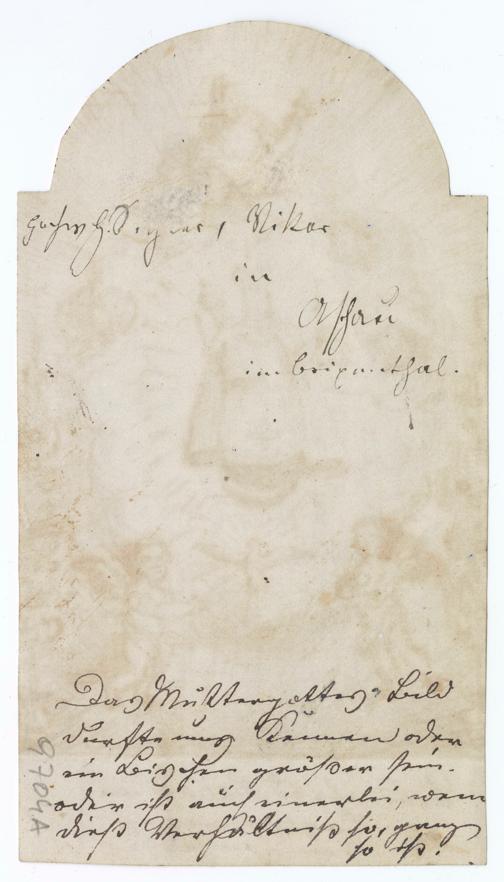 Hochw. H. , Vikar
in
Aschau
im Brixenthal.
Das Muttergottes-Bild
durfte  oder
ein Bischen größer sein.
oder ist auch einerlei, wenn
dieß Verhältniß so, ganz
so ist.
9704A